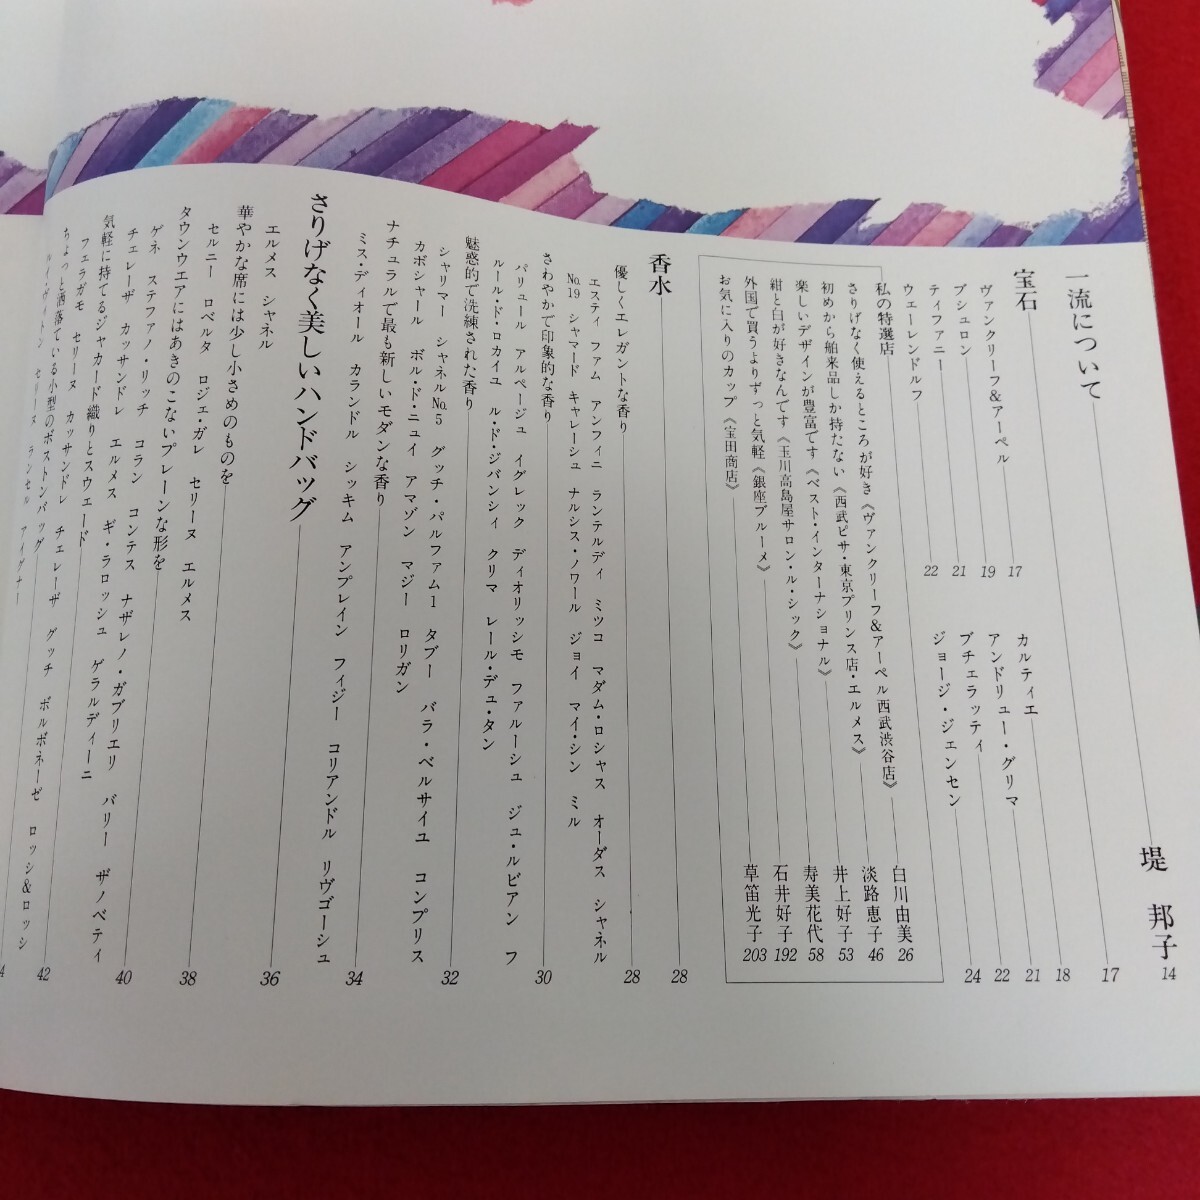 一流について 堤 邦子 14
宝石 17
ヴァンクリーフ&アーペル 17
ブシュロン 19
ティファニー 21
ウェーレンドルフ 22
カルティエ 18
アンドリュー・グリマ 21
ブチェラッティ 22
ジョージ・ジェンセン 24
私の特選店
さりげなく使えるところが好き《ヴァンクリーフ&アーペル西武渋谷店》 白川由美 26
初めから舶来品しか持たない《西武ピサ・東京プリンス店・エルメス》 淡路恵子 46
楽しいデザインが豊富です《ベスト・インターナショナル》 井上好子 53
紺と白が好きなんです《玉川高島屋サロン・ル・シック》 寿美花代 58
外国で買うよりずっと気軽《銀座プルーメ》 石井好子 192
お気に入りのカップ《宝田商店》 草笛光子 203
香水 28
優しくエレガントな香り 28
エスティ ファム アンフィニ ランテルディ ミツコ マダム・ロシャス オーダス シャネル
No.19 シャマード キャレーシュ ナルシス・ノワール ジョイ マイ・シン ミル
さわやかで印象的な香り 30
パリュール アルページュ イグレック ディオリッシモ ファルーシュ ジュ・ルビアン フ
ルール・ド・ロカイユ ル・ド・ジバンシィ クリマ レール・デュ・タン
魅惑的で洗練された香り 32
シャリマー シャネルNo.5 グッチ・パルファム1 タブー バラ・ベルサイユ コンプリス
カボシャール ボル・ド・ニュイ アマゾン マジー ロリガン
ナチュラルで最も新しいモダンな香り 34
ミス・ディオール カランドル シッキム アンプレイン フィジー コリアンドル リヴゴーシュ
さりげなく美しいハンドバッグ 36
エルメス シャネル
華やかな席には少し小さめのものを 38
セルニー ロベルタ ロジェ・ガレ セリーヌ エルメス
タウンウエアにはあきのこないプレーンな形を 40
ゲネ ステファノ・リッチ コラン コンテス ナザレノ・ガブリエリ バリー ザノベティ
チェレーザ カッサンドレ エルメス ギ・ラロッシュ ゲラルディーニ
気軽に持てるジャカード織りとスウェード 42
フェラガモ セリーヌ カッサンドレ チェレーザ グッチ ボルボネーゼ ロッシ&ロッシ
ちょっと洒落ている小型のボストンバッグ
ルイ・ヴィトン セリーヌ ランセル アイグナー